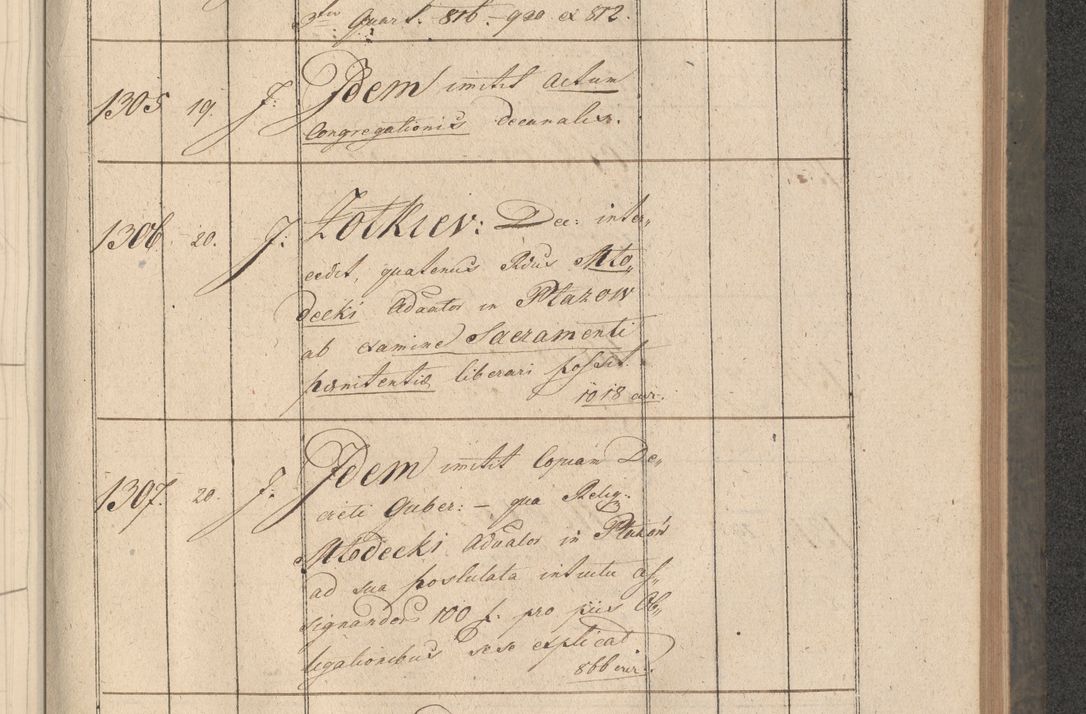 3tio Quart. 816. - 920 ex 812.
1305 19. J: Idem imitit Actum
Congregationis decanalis.
1306 20. J: Żołkiev: Dec: inter„
cedit, quatenus Rdus Mło„
decki Aduator in Płazow
ab examine Sacramenti
pœnitentiæ liberari possit.
1018 cur.
1307. 20. J. Idem imitit Copiam De„
creti Guber: - qua Relig.
Młodecki Aduator in Płazow
ad sua postulata intuitu as„
signandor 100 f. pro piis Ob„
ligationibus sese explicat
866 cur.